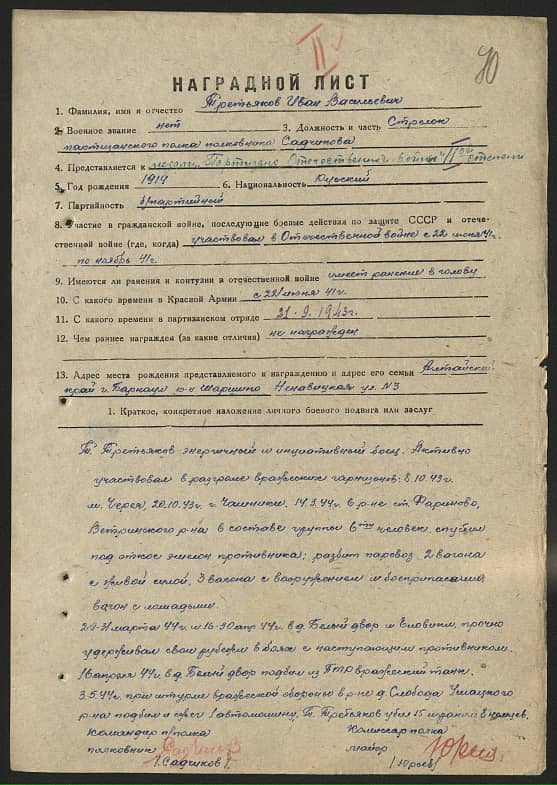 II
НАГРАДНОЙ ЛИСТ
1. Фамилия, имя и отчество Третьяков Иван Васильевич
2. Военное звание нет 3. Должность и часть Стрелок
партизанского полка полковника Садчикова
4. Представляется к медали „Партизану Отечественной войны" II ой степени
5. Год рождения 1914 6. Национальность Русский
7. Партийность б/партийный
8. Участие в гражданской войне, последующие боевые действия по защите СССР и отече-
ственной войне (где, когда) участвовал в Отечественной войне с 22 июня 41г.
по ноябрь 41г.
9. Имеются ли ранения и контузии в отечественной войне имеет ранение в голову
10. С какого времени в Красной Армии с 22 июня 41г.
11. С какого времени в партизанском отряде 21.9.1943г.
12. Чем ранее награжден (за какие отличия) не награжден
13. Адрес места рождения представляемого к награждению и адрес его семьи Алтайский
край г. Барнаул ул. №3
1. Краткое, конкретное изложение личного боевого подвига или заслуг
Т. Третьяков энергичный и инициативный боец. Активно
участвовал в разгроме вражеских гарнизонов: 8.10.43г.
м. Черея, 20.10.43г. г. Чашники. 14.3.44г. в р-не ст. Фариново,
Ветринского р-на в составе группы 6ти человек, спустил
под откос эшелон противника; разбит паровоз, 2 вагона
с живой силой, 3 вагона с вооружением и боеприпасами,
вагон с лошадьми.
29-31 марта 44г и 16-30 апр 44г. в д. Белый двор и Еловики, прочно
удерживал свои рубежи в боях с наступающим противником.
18 апреля 44г. в д. Белый двор подбил из ПТР вражеский танк.
3.5.44г. при штурме вражеской обороны в р-не д. Слобода Ушацкого
р-на подбил и сжег 1 автомашину. Т. Третьяков убил 15 8 немцев.
Командир п/полка Комиссар полка
полковник майор
/Садчиков/ /Юрьев/